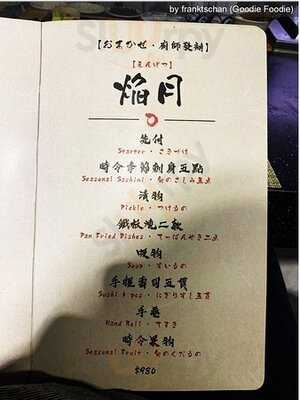 by franktschan (Goodie Foodie)
【おまかせ・廚師發辦】
【えんげつ】
焔月
先付
Starter・さきづけ
時令季節刺身五點
Seasonal Sashimi・旬のさしみ五点
漬物
Pickle・つけもの
鐵板燒二款
Pan Fried Dishes・てっぱんやき二点
吸物
Soup・すいもの
手握壽司五貫
Sushi 5 pcs・にぎりすし五貫
手卷
Hand Roll・てまき
時令果物
Seasonal Fruit・旬のくだもの
$980